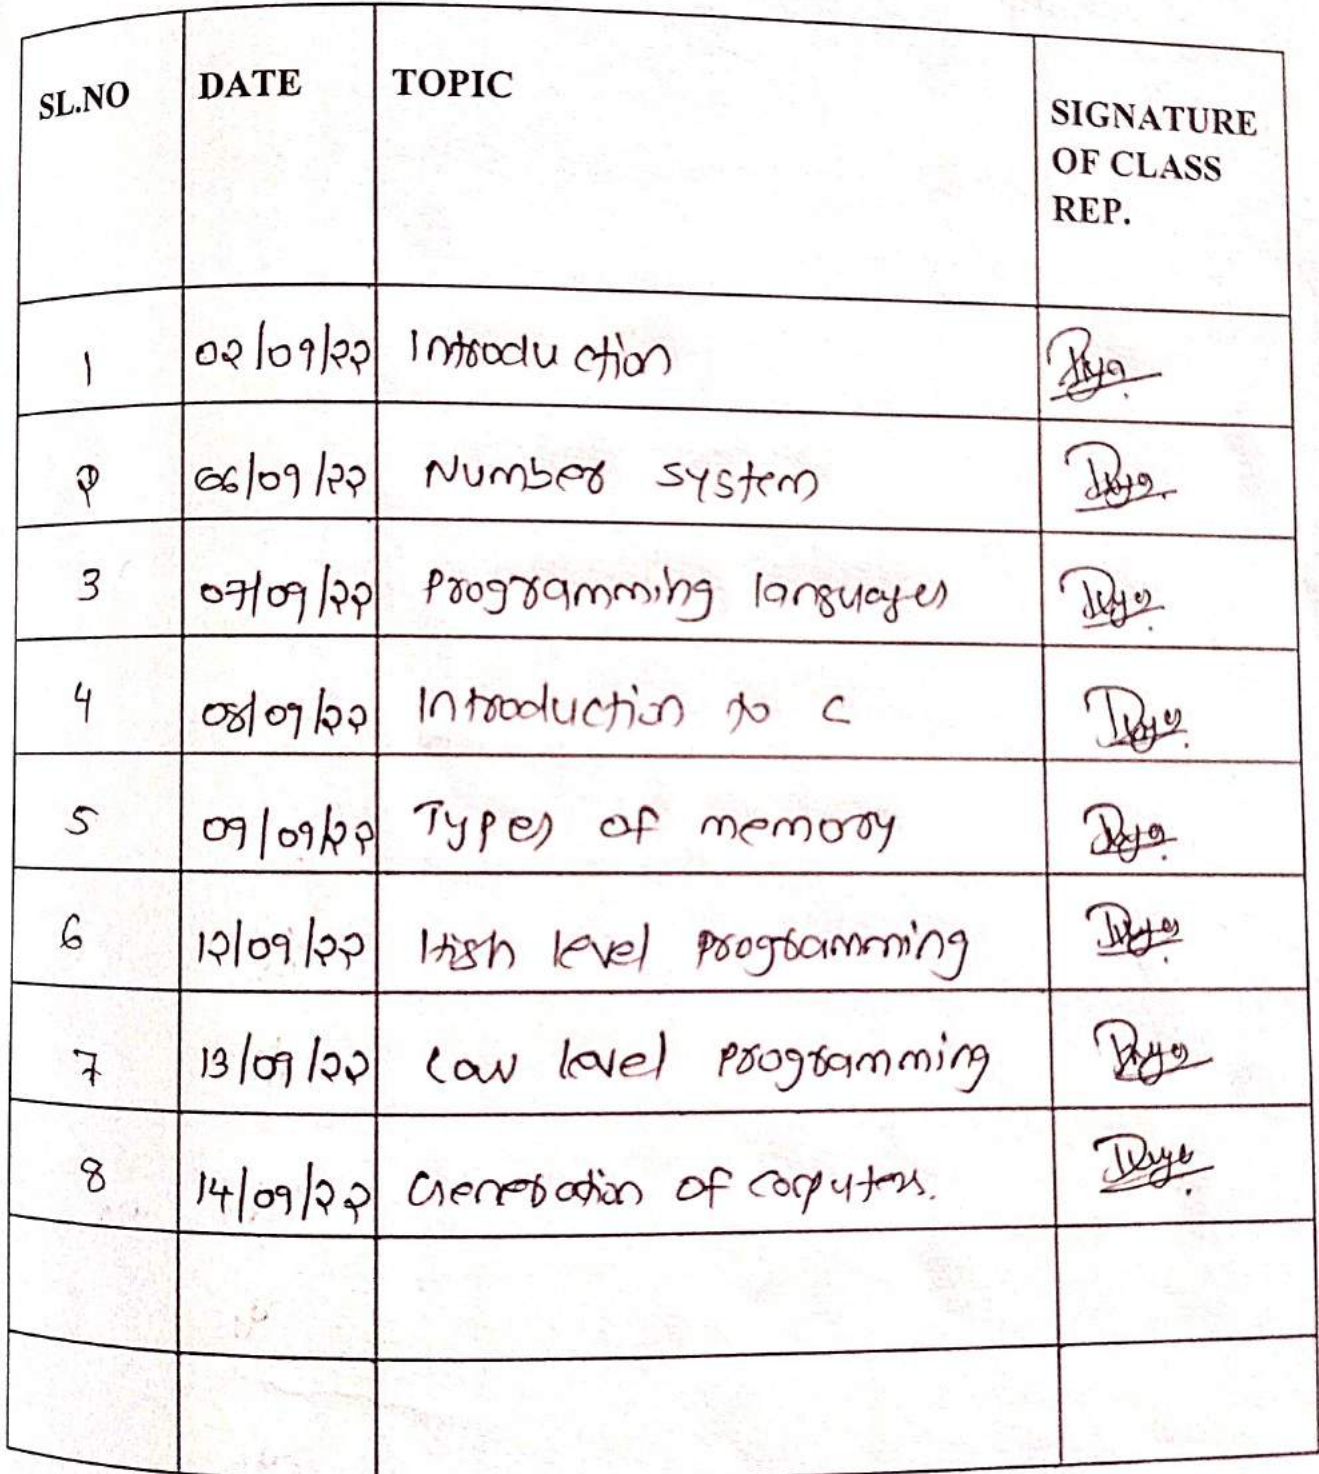 SL.NO DATE TOPIC SIGNATURE
OF CLASS
REP.
1 02/09/22 Introduction
2 06/09/22 Number system
3 07/09/22 Programming languages
4 08/09/22 Introduction to C
5 09/09/22 Types of memory
6 12/09/22 High level programming
7 13/09/22 Low level programming
8 14/09/22 Generation of coputers.